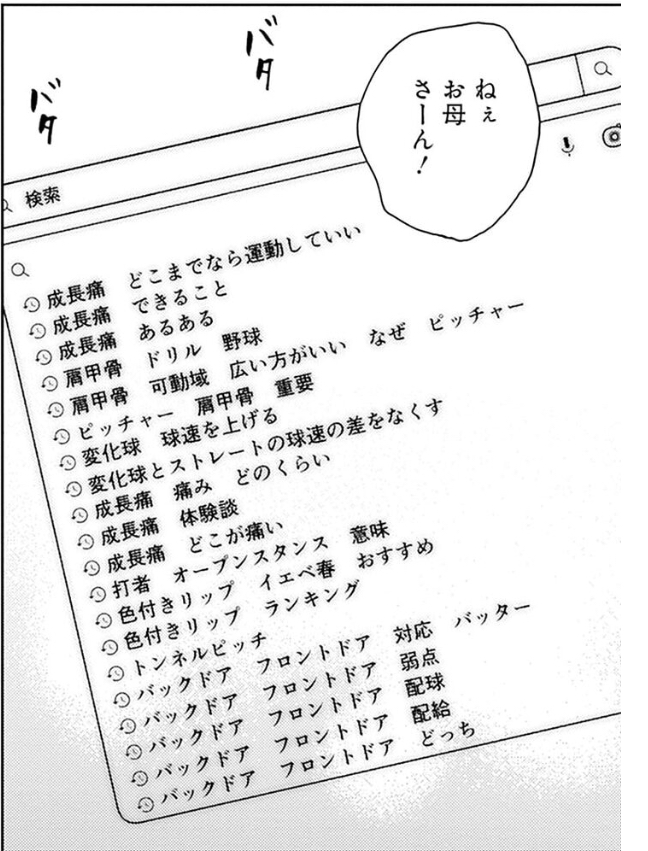 バタ
バタ
ねぇ
お母
さーん！
検索
成長痛　どこまでなら運動していい
成長痛　できること
成長痛　あるある
肩甲骨　ドリル　野球
肩甲骨　可動域　広い方がいい　なぜ　ピッチャー
ピッチャー　肩甲骨　重要
変化球　球速を上げる
変化球とストレートの球速の差をなくす
成長痛　痛み　どのくらい
成長痛　体験談
成長痛　どこが痛い
打者　オープンスタンス　意味
色付きリップ　イエベ春　おすすめ
色付きリップ　ランキング
トンネルピッチ
バックドア　フロントドア　対応　バッター
バックドア　フロントドア　弱点
バックドア　フロントドア　配球
バックドア　フロントドア　配給
バックドア　フロントドア　どっち